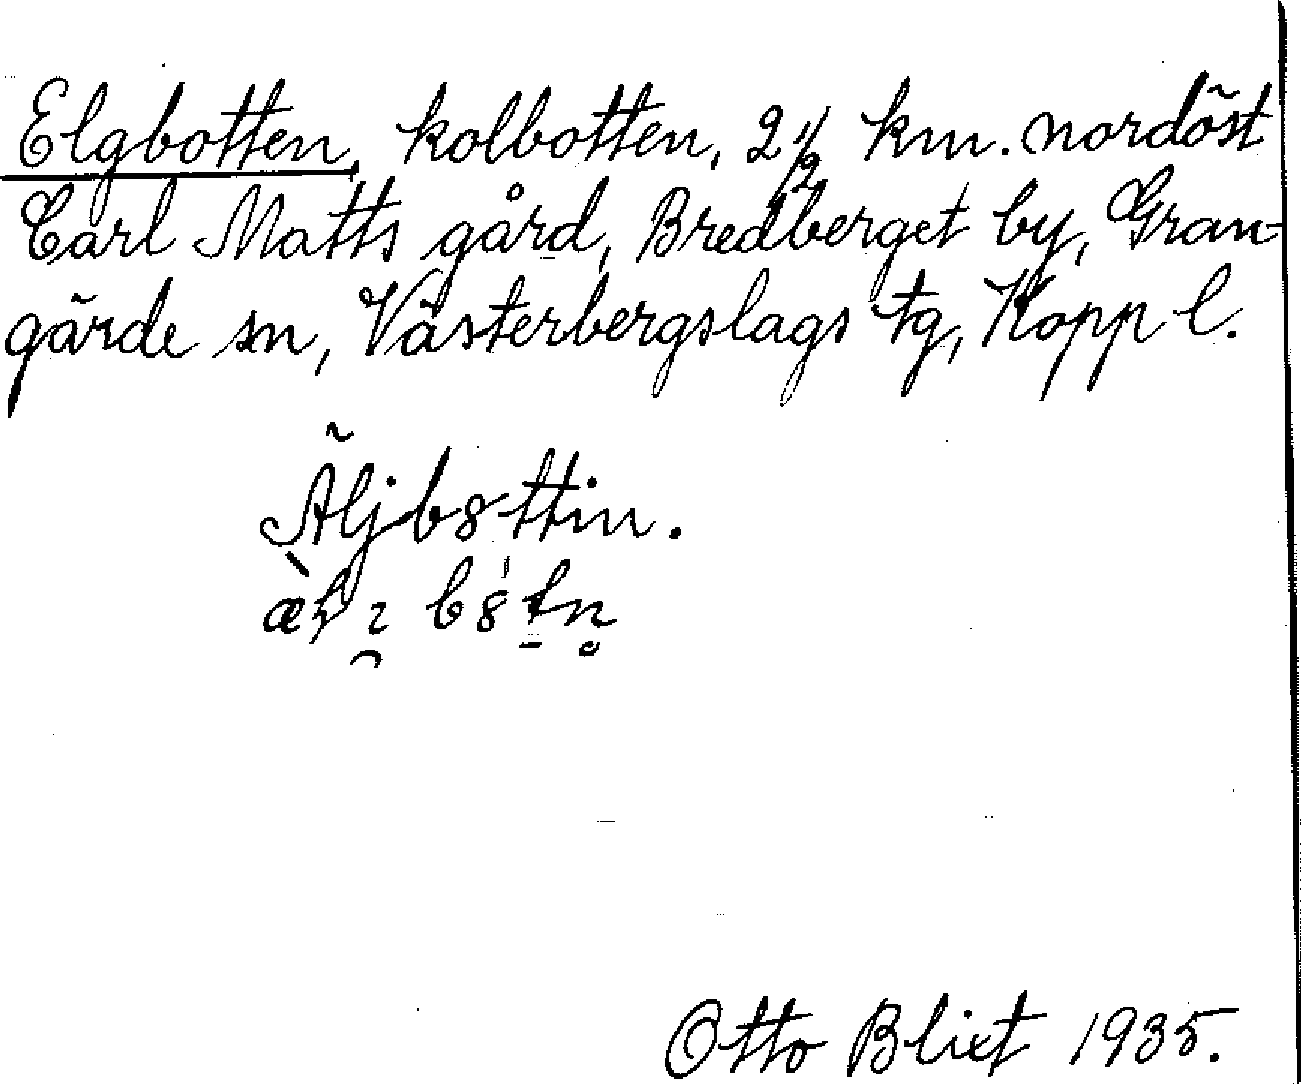 Elgbotten, kolbotten, 2 1/2 km. nordöst
Carl Matts gård, Bredberget by, Gran-
gärde sn, Västerbergslags tg, Kopp l.
Äljb8ttin.
Otto Blixt 1935.